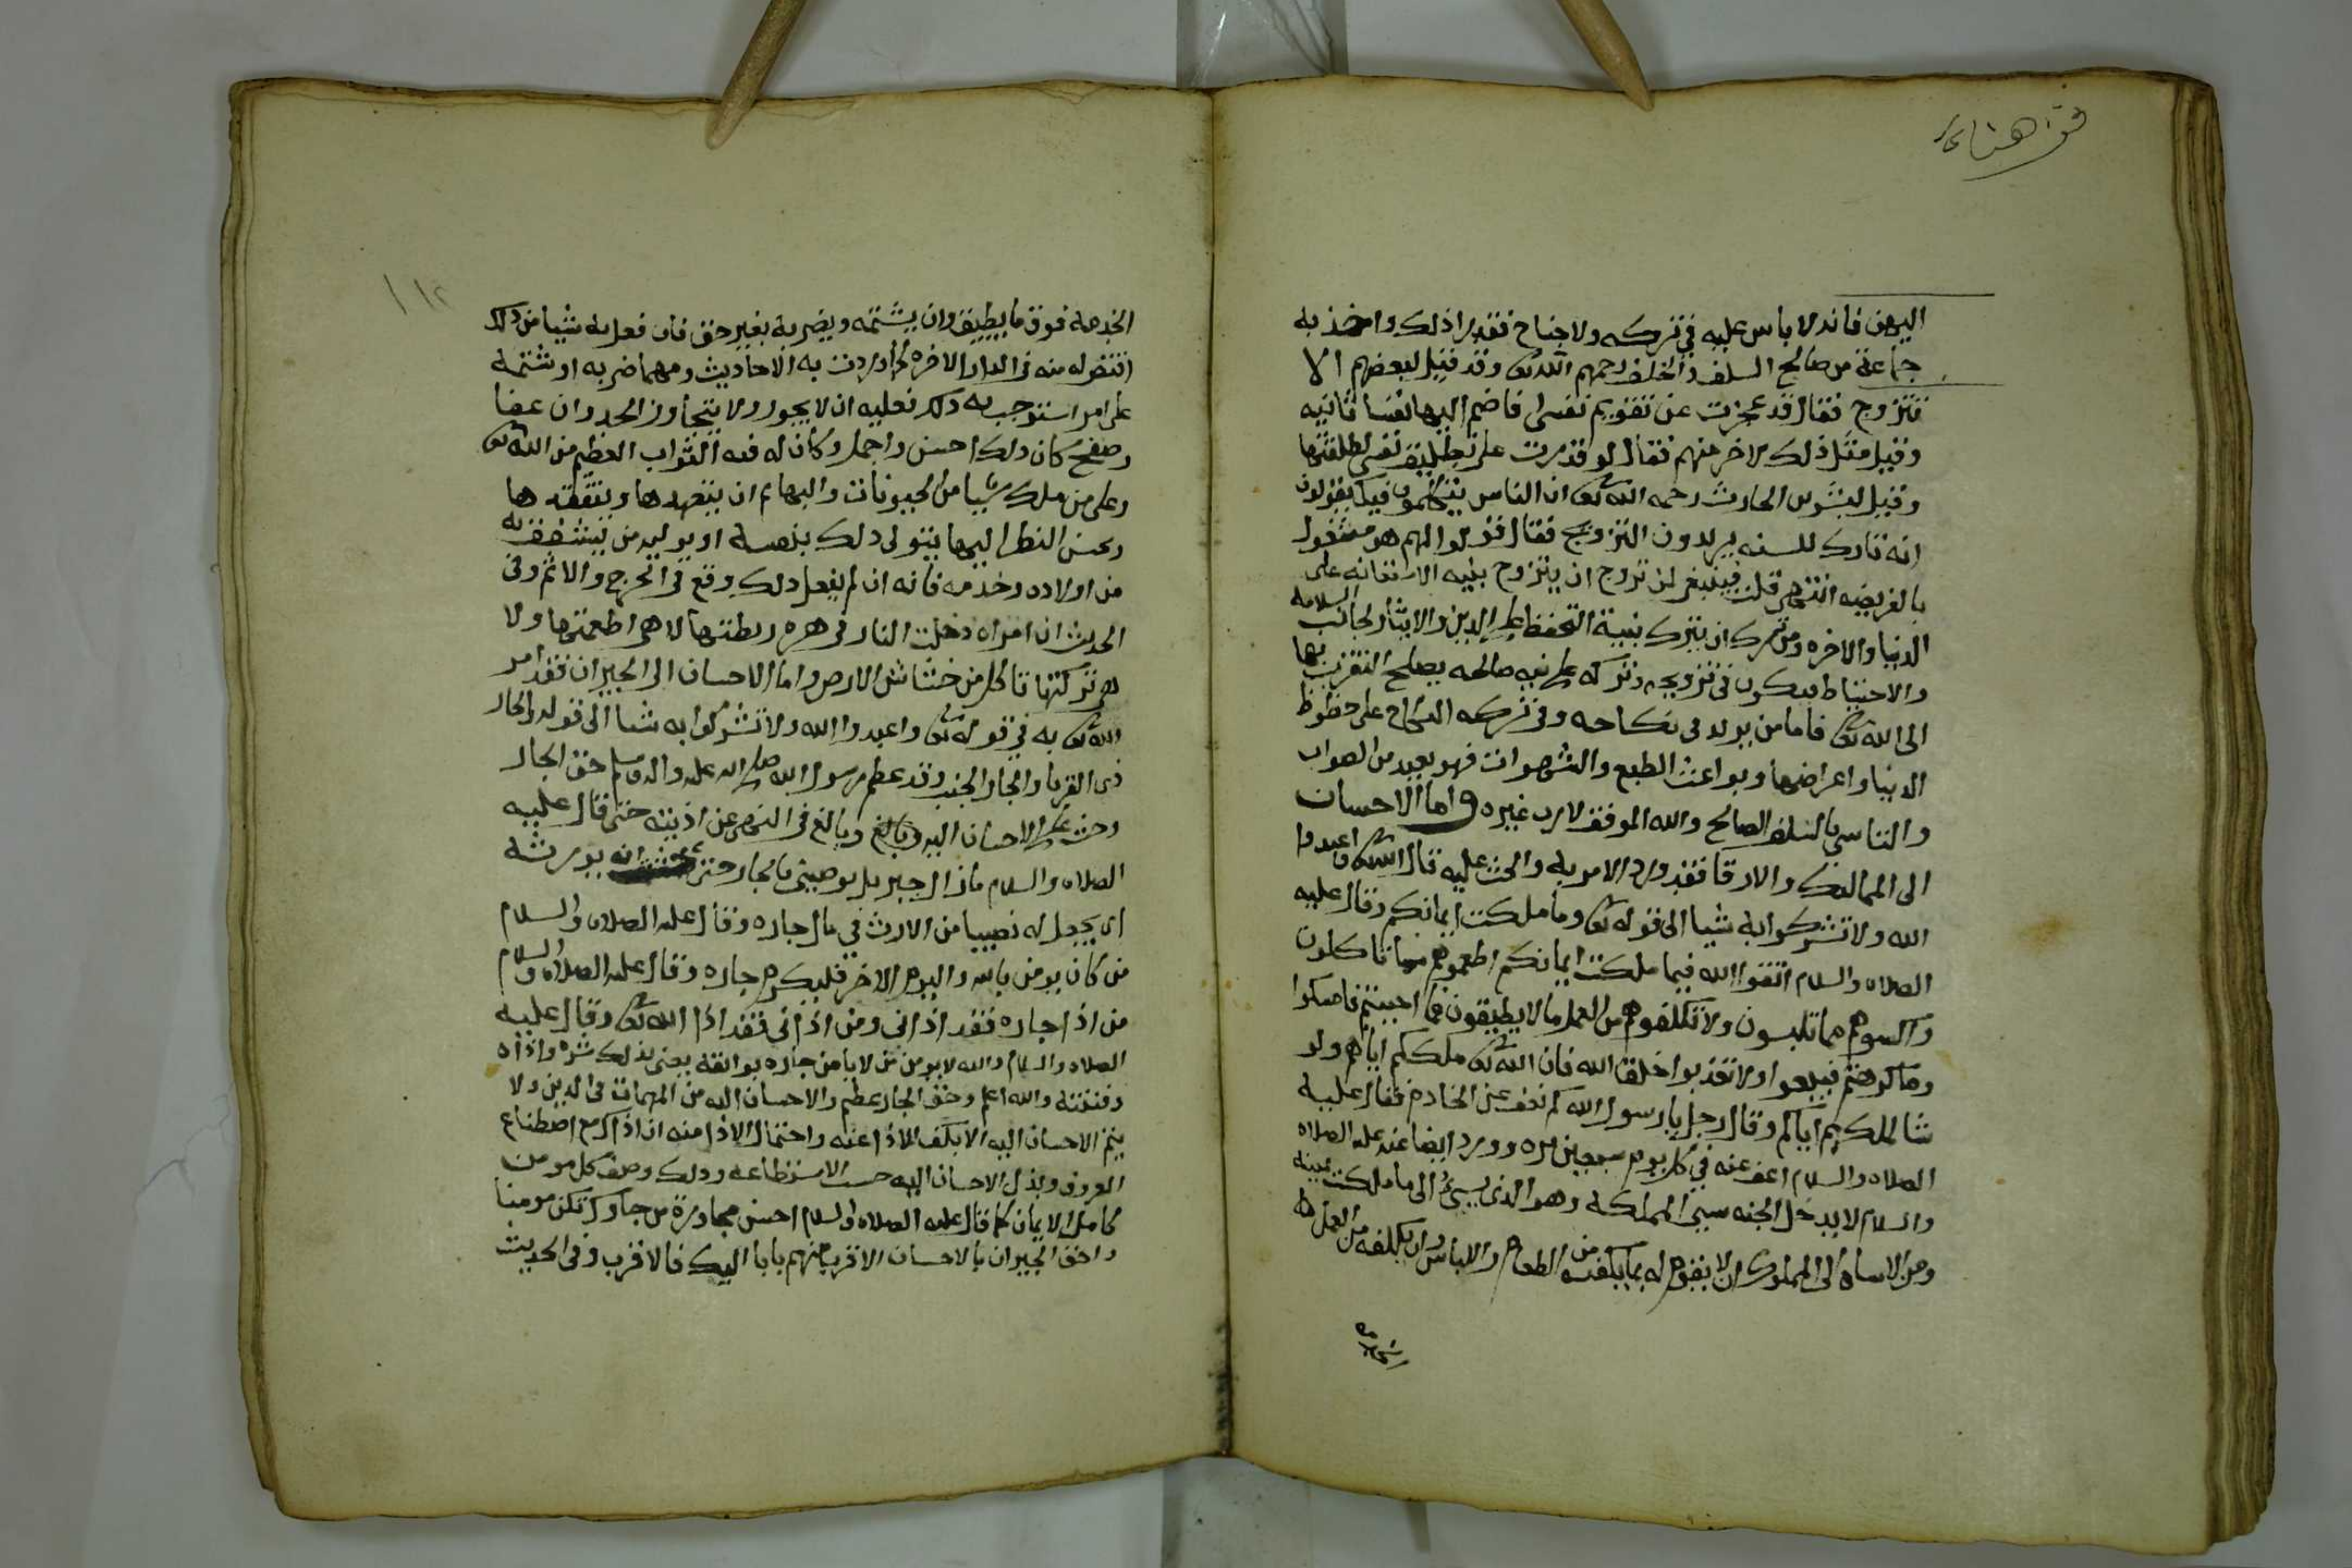 قف هنا
اليهن فانه لا باس عليه في تركه ولا جناح فقد را ذلك واخذ به
جماعة من صالح السلف والخلف رحمهم الله تعالى وقد قيل لبعضهم الا
تتزوج فقال قد عجزت عن تقويم نفسي افاضم اليها نفسا ثانيه
وقيل مثل ذلك لاخر منهم فقال لو قدرت على تطليق نفسي لطلقتها
وقيل لبشر بن الحارث رحمه الله تعالى ان الناس يتكلمون فيك يقولون
انه تارك للسنه يريدون التزويج فقال قولوا لهم هو مشغول
بالفريضه انتهى قلت فينبغي لمن تزوج ان يتزوج بنيه الاستعانه على
الدنيا والاخره ومن ترك ان يترك بنية التحفظ على الدين والايثار لجانب السلامه
والاحتياط فيكون في تزويجه وتركه على نيه صالحه يصلح التقرب بها
الى الله تعالى فاما من يولد في نكاحه وفي تركه النكاح على حظوظ
الدنيا واعراضها وبواعث الطبع والشهوات فهو بعيد من الصواب
والتاسي بالسلف الصالح والله الموفق لا رب غيره واما الاحسان
الى المماليك والارقا فقد ورد الامر به والحث عليه قال الله تعالى واعبدوا
الله ولا تشركوا به شيا الى قوله تعالى وما ملكت ايمانكم وقال عليه
الصلاه والسلام اتقوا الله فيما ملكت ايمانكم اطعموهم مما تاكلون
واكسوهم مما تلبسون ولا تكلفوهم من العمل ما لا يطيقون فما احببتم فامسكوا
وما كرهتم فبيعوا ولا تعذبوا خلق الله فان الله تعالى ملككم اياهم ولو
شا لملكهم اياكم وقال رجل يا رسول الله كم نعف عن الخادم فقال عليه
الصلاه والسلام اعف عنه في كل يوم سبعين مره وورد ايضا عنه عليه الصلاه
والسلام لا يدخل الجنه سيئ المملكه وهو الذي يسيئ الى ما ملكت يمينه
ومن الاساة الى المملوك ان لا يقوم له بما يكفيه من الطعام واللباس وان يكلفه من العمل
الخدمه فوق ما يطيق وان يشتمه ويضربه بغير حق فان فعل به شيا من ذلك
اقتص له منه في الدار الاخره كما وردت به الاحاديث ومهما ضربه او شتمه
على امر استوجب به ذلك فعليه ان لا يجور ولا يتجاوز الحد وان عفا
وصفح كان ذلك احسن واجمل وكان له فيه الثواب العظيم من الله تعالى
وعلى من ملك شيا من الحيونات والبهايم ان يتعهدها ويتفقدها
ويحسن النظر اليها يتولى ذلك بنفسه او يوليه من يثق به
من اولاده وخدمه فانه ان لم يفعل ذلك وقع في الحرج والاثم وفي
الحديث ان امراه دخلت النار في هره ربطتها لا هي اطعمتها ولا
هي تركتها تاكل من خشاش الارض واما الاحسان الى الجيران فقد امر
الله تعالى به في قوله تعالى واعبدوا الله ولا تشركوا به شيا الى قوله والجار
ذي القربا والجار الجنب وقد عظم رسول الله صلى الله عليه واله وسلم حق الجار
وحث على الاحسان اليه وبالغ وبالغ في النهي عن اذيته حتى قال عليه
الصلاه والسلام ما زال جبريل يوصيني بالجار حتى انه يورثه
اى يجعل له نصيبا من الارث في مال جاره وقال عليه الصلاه والسلام
من كان يومن بالله واليوم الاخر فليكرم جاره وقال عليه الصلاه والسلام
من اذا جاره فقد اذاني ومن اذاني فقد اذا الله تعالى وقال عليه
الصلاه والسلام والله لا يومن من لا يامن جاره بوائقه يعني بذلك شره واذاه
وفتنته والله اعلم وحق الجار عظيم والاحسان اليه من المهمات في الدين ولا
يتم الاحسان اليه الا بكف الاذا عنه واحتمال الاذا منه ان اذاك مع اصطناع
المعروف وبذل الاحسان اليه حسب الاستطاعه وذلك وصف كل مومن
كامل الايمان كما قال عليه الصلاه والسلام احسن مجاورة من جاورك تكن مومنا
واحق الجيران بالاحسان الاقرب منهم بابا اليك فالاقرب وفي الحديث